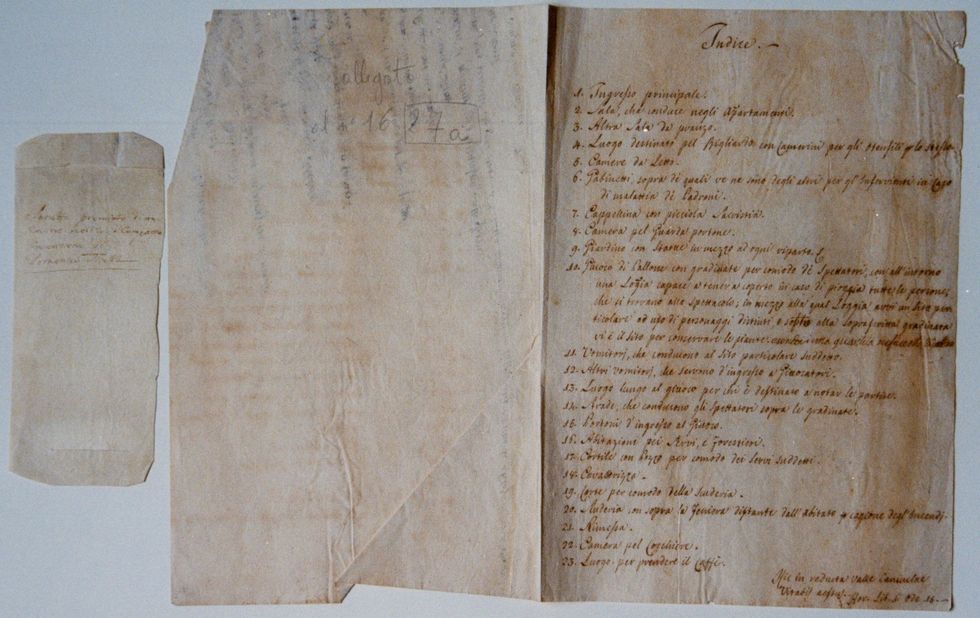 Indice.
1. Ingresso principale.
2. Sala, che conduce negli Appartamenti.
3. Altra Sala da pranzo.
4. Luogo destinato pel Bigliardo, con Camerini per gli Utensili
5. Camere da Letto.
6. Gabinetti, sopra di quali ve ne sono degli altri per gl' Inservienti in Caso
di malattia de Padroni.
7. Cappellina con picciola Sacristia.
8. Camera pel Guarda portone.
9. Giardino con Statue in mezzo ad ogni riparto.
10. Giuoco di Pallone con gradinate per comodo de Spettatori, con all' intorno
una Logia capace a tener a coperto in caso di pioggia tutte le persone,
che si trovano allo spettacolo; in mezzo alla qual Loggia avvi un Sito par-
ticolare ad uso di personaggi distinti, e sotto alla sopracennata gradinata
vi è il sito per conservare le piante
11. Vomitorj, che conducono al Sito particolare suddetto.
12. Altri vomitorj, che servono d'ingresso a Giuocatori.
13. Luogo lungo al giuoco per chi è destinato a notar le partite.
14. Scale, che conducono gli Spettatori sopra le gradinate.
15. Portoni d'ingresso al Giuoco.
16. Abitazione pei Servi, e Forestieri.
17. Cortile con Pozzo per comodo dei servi suddetti.
18. Cavallerizza.
19. Corte per comodo della Scuderia.
20. Scuderia con sopra la Feniera distante dall' Abitato cagione degl' Incendj.
21. Rimessa.
22. Camera pel Cocchiere.
23. Luogo per prendere il Caffè.
Hic in reducta valle Caniculae
Vitabis aestus. Hor. Lib. I. Ode
allegato
al n° 16
27
a